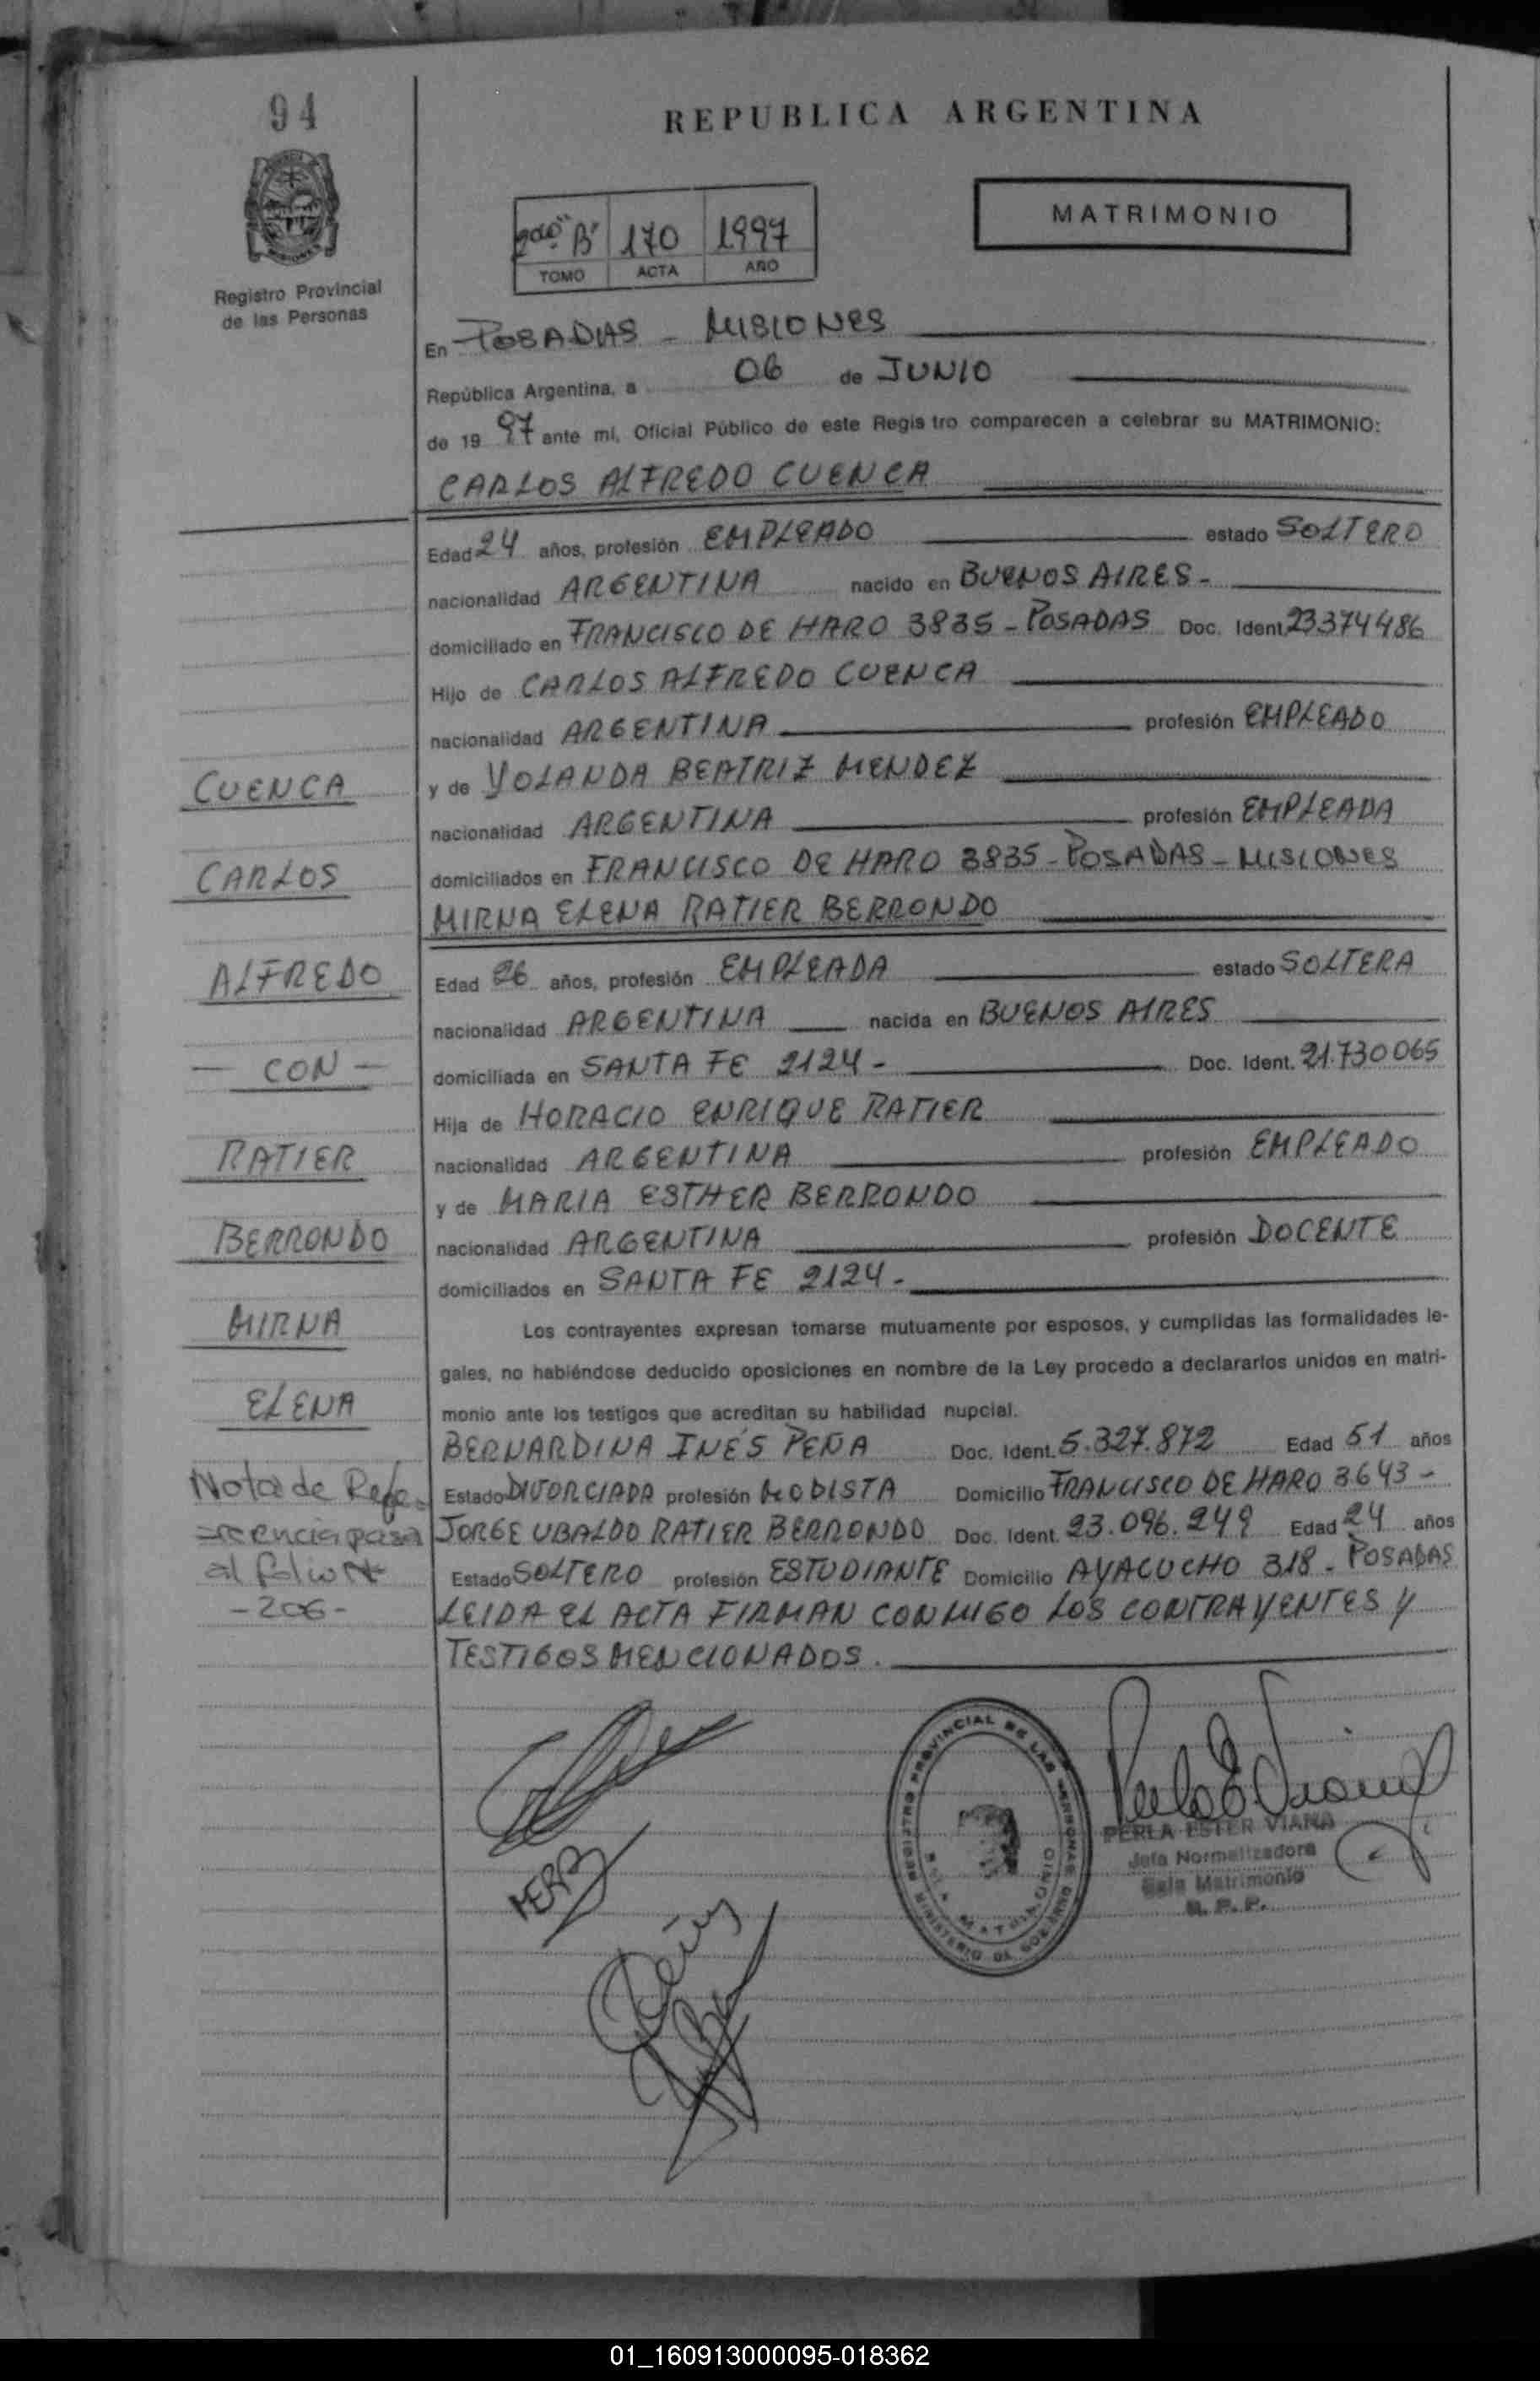 94
REPUBLICA ARGENTINA
MATRIMONIO
2do "B" 170 1997
TOMO ACTA AÑO
Registro Provincial
de las Personas
En POSADAS - MISIONES
República Argentina, a 06 de JUNIO
de 19 97 ante mí, Oficial Público de este Registro comparecen a celebrar su MATRIMONIO:
CARLOS ALFREDO CUENCA
Edad 24 años, profesión EMPLEADO estado SOLTERO
nacionalidad ARGENTINA nacido en BUENOS AIRES-
domiciliado en FRANCISCO DE HARO 3835 - POSADAS Doc. Ident. 23374486
Hijo de CARLOS ALFREDO CUENCA
nacionalidad ARGENTINA profesión EMPLEADO
y de YOLANDA BEATRIZ MENDEZ
nacionalidad ARGENTINA profesión EMPLEADA
domiciliados en FRANCISCO DE HARO 3835 - POSADAS - MISIONES
MIRNA ELENA RATIER BERRONDO
Edad 26 años, profesión EMPLEADA estado SOLTERA
nacionalidad ARGENTINA nacida en BUENOS AIRES
domiciliada en SANTA FE 2124 - Doc. Ident. 21.730065
Hija de HORACIO ENRIQUE RATIER
nacionalidad ARGENTINA profesión EMPLEADO
y de MARIA ESTHER BERRONDO
nacionalidad ARGENTINA profesión DOCENTE
domiciliados en SANTA FE 2124 -
Los contrayentes expresan tomarse mutuamente por esposos, y cumplidas las formalidades le-
gales, no habiéndose deducido oposiciones en nombre de la Ley procedo a declararlos unidos en matri-
monio ante los testigos que acreditan su habilidad nupcial.
BERNARDINA INÉS PEÑA Doc. Ident. 5.327.872 Edad 51 años
Estado DIVORCIADA profesión MODISTA Domicilio FRANCISCO DE HARO 3643 -
JORGE UBALDO RATIER BERRONDO Doc. Ident. 23.096.249 Edad 24 años
Estado SOLTERO profesión ESTUDIANTE Domicilio AYACUCHO 318 - POSADAS
LEIDA EL ACTA FIRMAN CONMIGO LOS CONTRAYENTES Y
TESTIGOS MENCIONADOS.
CUENCA
CARLOS
ALFREDO
- CON -
RATIER
BERRONDO
MIRNA
ELENA
Nota de Refe-
rencia pasa
al folio Nº
- 206 -
REGISTRO PROVINCIAL DE LAS PERSONAS
MINISTERIO DE GOBIERNO
PERLA ESTER VIANA
Jefa Normalizadora
Sala Matrimonio
R. P. P.
01_160913000095-018362